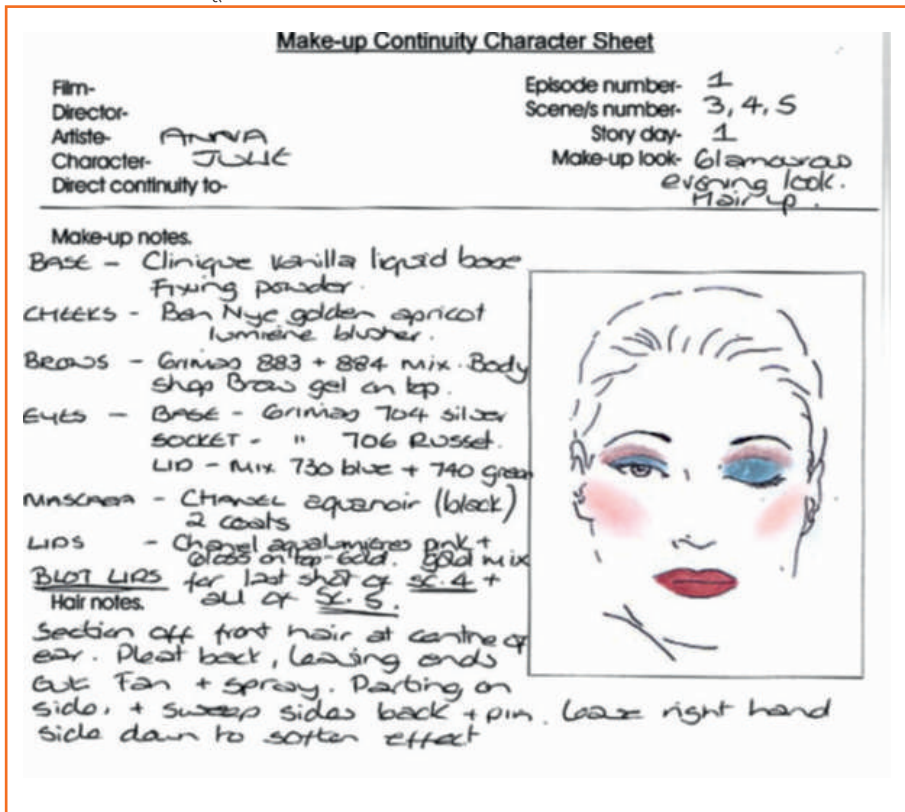 Make-up Continuity Character Sheet
Film-
Director-
Artiste- ANNA
Character- JULIE
Direct continuity to-
Episode number- 1
Scene/s number- 3, 4, 5
Story day- 1
Make-up look- Glamorous
evening look.
Hair up.
Make-up notes.
BASE - Clinique vanilla liquid base
Fixing powder.
CHEEKS - Ben Nye golden apricot
lumiere blusher.
BROWS - Grimas 883 + 884 mix. Body
Shop Brow gel on top.
EYES - BASE - Grimas 704 silver
SOCKET - " 706 Russet.
LID - Mix 730 blue + 740 green
MASCARA - CHANEL aquanoir (black)
2 coats
LIPS - Chanel pink +
Gloss on top - Gold. Gold mix
BLOT LIPS for last shot of sc. 4 +
Hair notes. all of Sc. 5.
Section off front hair at centre of
ear. Pleat back, leaving ends
out. Fan + spray. Parting on
side, + sweep sides back + pin. Leave right hand
side down to soften effect